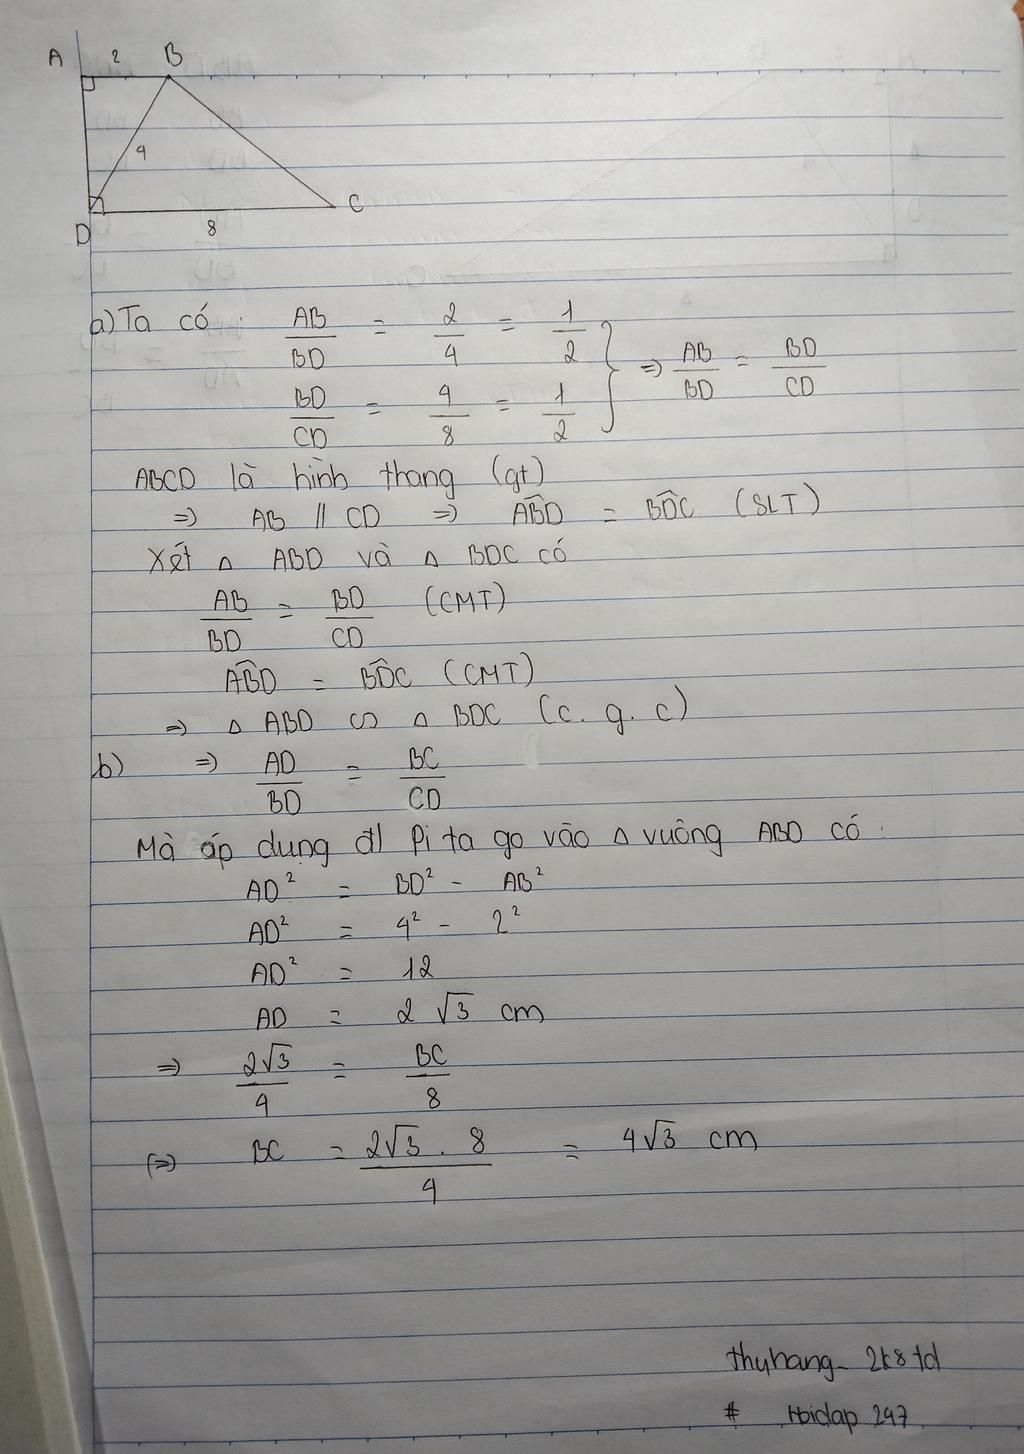 A 2 B
4
D 8 C
a) Ta có: AB/BD = 2/4 = 1/2
BD/CD = 4/8 = 1/2 } => AB/BD = BD/CD
ABCD là hình thang (gt)
=> AB // CD => ABD̂ = BDĈ (SLT)
Xét Δ ABD và Δ BDC có
AB/BD = BD/CD (CMT)
ABD̂ = BDĈ (CMT)
=> Δ ABD ∽ Δ BDC (c. g. c)
b) => AD/BD = BC/CD
Mà áp dụng đl Pi ta go vào Δ vuông ABD có:
AD² = BD² - AB²
AD² = 4² - 2²
AD² = 12
AD = 2√3 cm
=> 2√3/4 = BC/8
(=>) BC = 2√3 . 8/4 = 4√3 cm
thyhang_ 2k8 td
# Hoidap 247